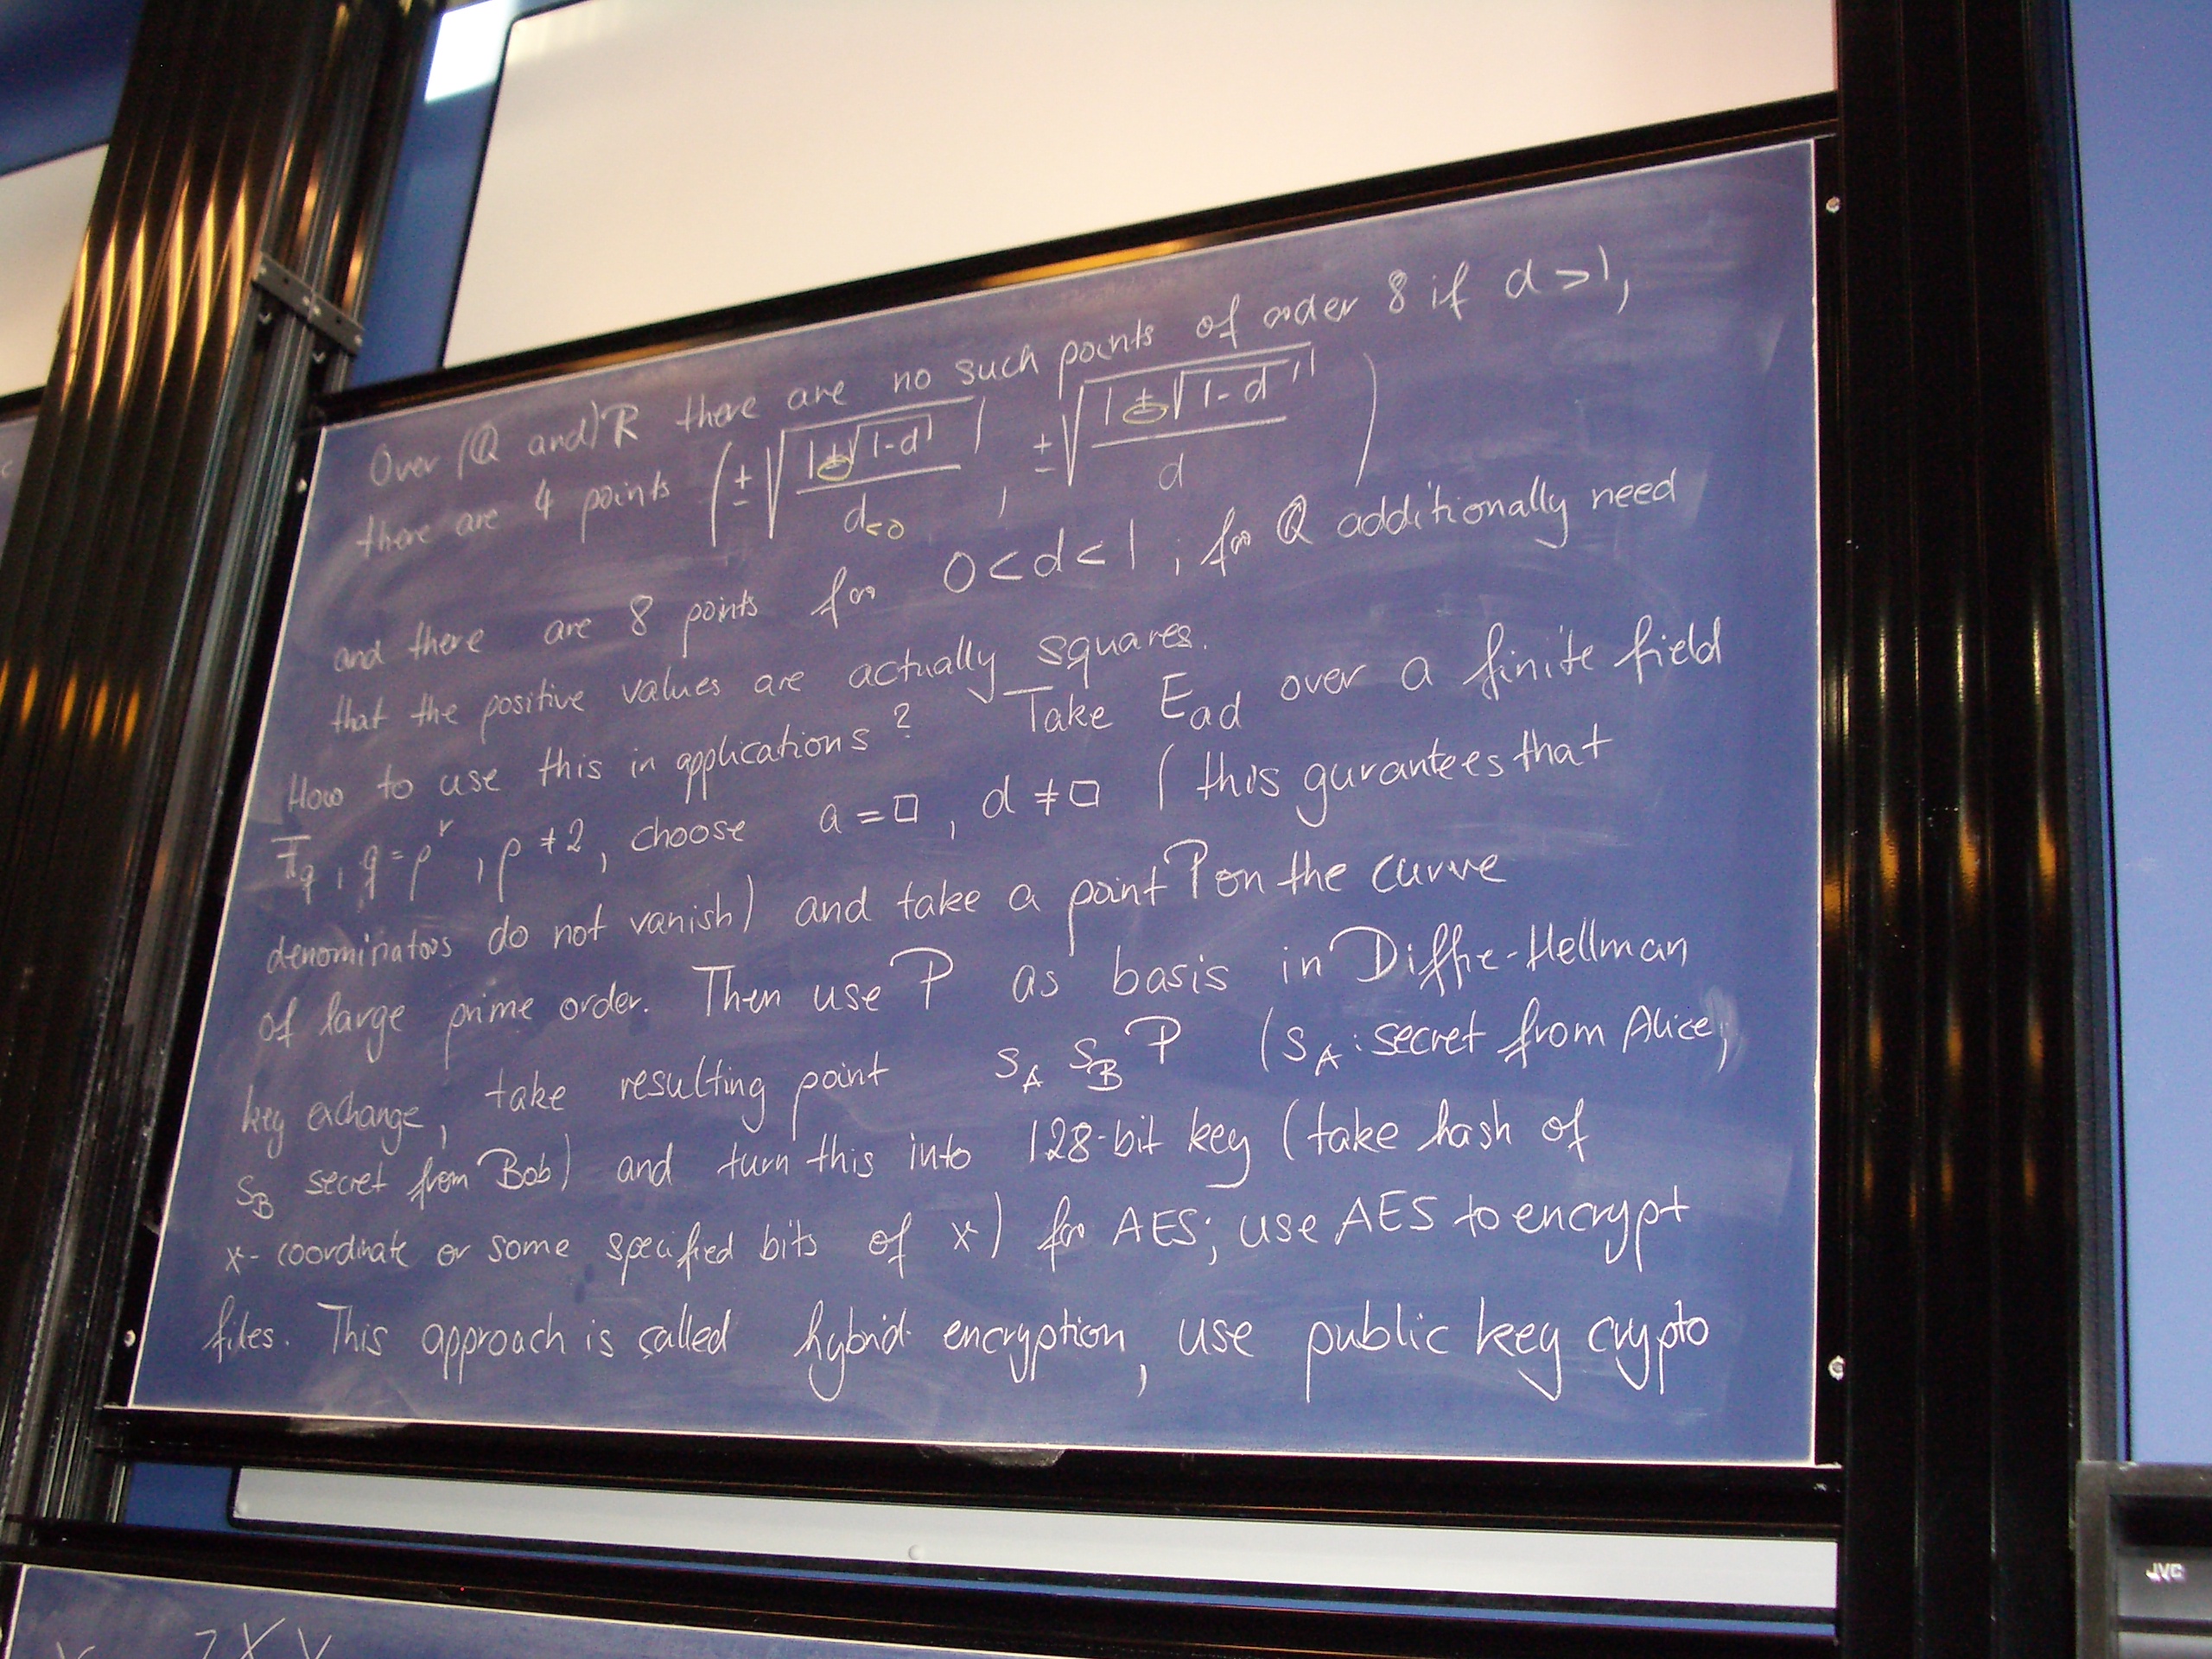 Over (Q and) R there are no such points of order 8 if d > 1,
there are 4 points (±√((1±√(1-d))/d<0), ±√((1±√(1-d))/d))
and there are 8 points for 0<d<1; for Q additionally need
that the positive values are actually squares.
How to use this in applications? Take E_ad over a finite field
F_q, q=p^r, p≠2, choose a=□, d≠□ (this gurantees that
denominators do not vanish) and take a point P on the curve
of large prime order. Then use P as basis in Diffie-Hellman
key exchange, take resulting point s_A s_B P (s_A: secret from Alice,
s_B secret from Bob) and turn this into 128-bit key (take hash of
x-coordinate or some specified bits of x) for AES; use AES to encrypt
files. This approach is called hybrid encryption, use public key crypto
JVC